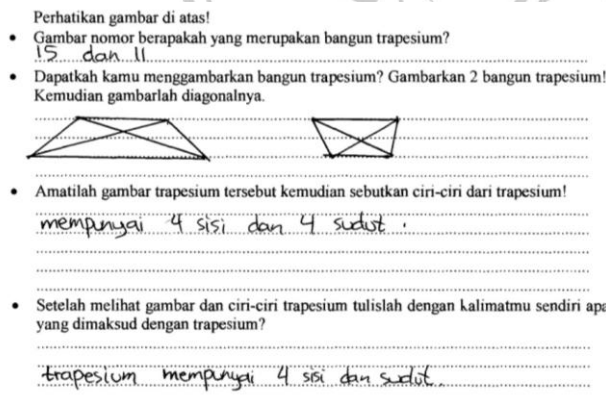 Perhatikan gambar di atas!
• Gambar nomor berapakah yang merupakan bangun trapesium?
15 dan 11
• Dapatkah kamu menggambarkan bangun trapesium? Gambarkan 2 bangun trapesium!
Kemudian gambarlah diagonalnya.
• Amatilah gambar trapesium tersebut kemudian sebutkan ciri-ciri dari trapesium!
mempunyai 4 sisi dan 4 sudut .
• Setelah melihat gambar dan ciri-ciri trapesium tulislah dengan kalimatmu sendiri apa
yang dimaksud dengan trapesium?
trapesium mempunyai 4 sisi dan sudut.